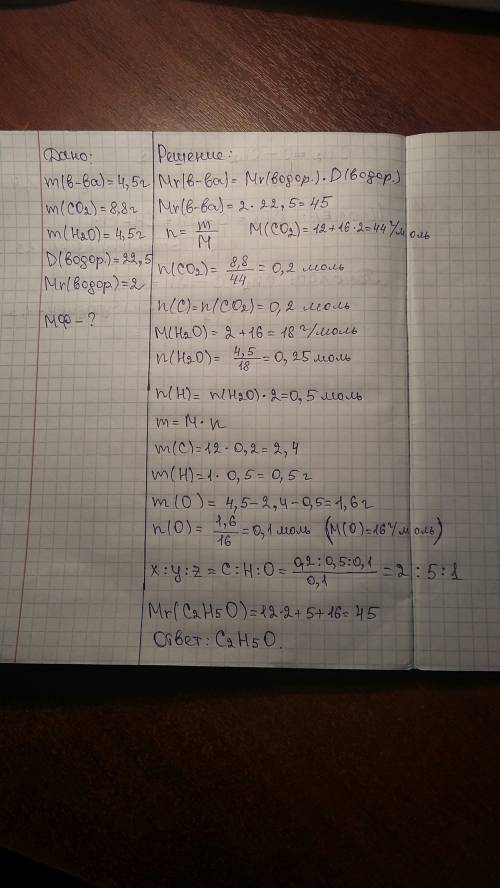 Дано:
m(в-ва)=4,5г
m(CO2)=8,8г
m(H2O)=4,5г
D(водор.)=22,5
Mr(водор.)=2
МФ-?
Решение:
Mr(в-ва)=Mr(водор.)·D(водор.)
Mr(в-ва)=2·22,5=45
n=m/M M(CO2)=12+16·2=44г/моль
n(CO2)=8,8/44=0,2 моль
n(C)=n(CO2)=0,2 моль
M(H2O)=2+16=18г/моль
n(H2O)=4,5/18=0,25моль
n(H)=n(H2O)·2=0,5моль
m=M·n
m(C)=12·0,2=2,4
m(H)=1·0,5=0,5г
m(O)=4,5-2,4-0,5=1,6г
n(O)=1,6/16=0,1моль (M(O)=16г/моль)
x:y:z=C:H:O=0,2:0,5:0,1/0,1=2:5:1
Mr(C2H5O)=12·2+5+16=45
Ответ: C2H5O.